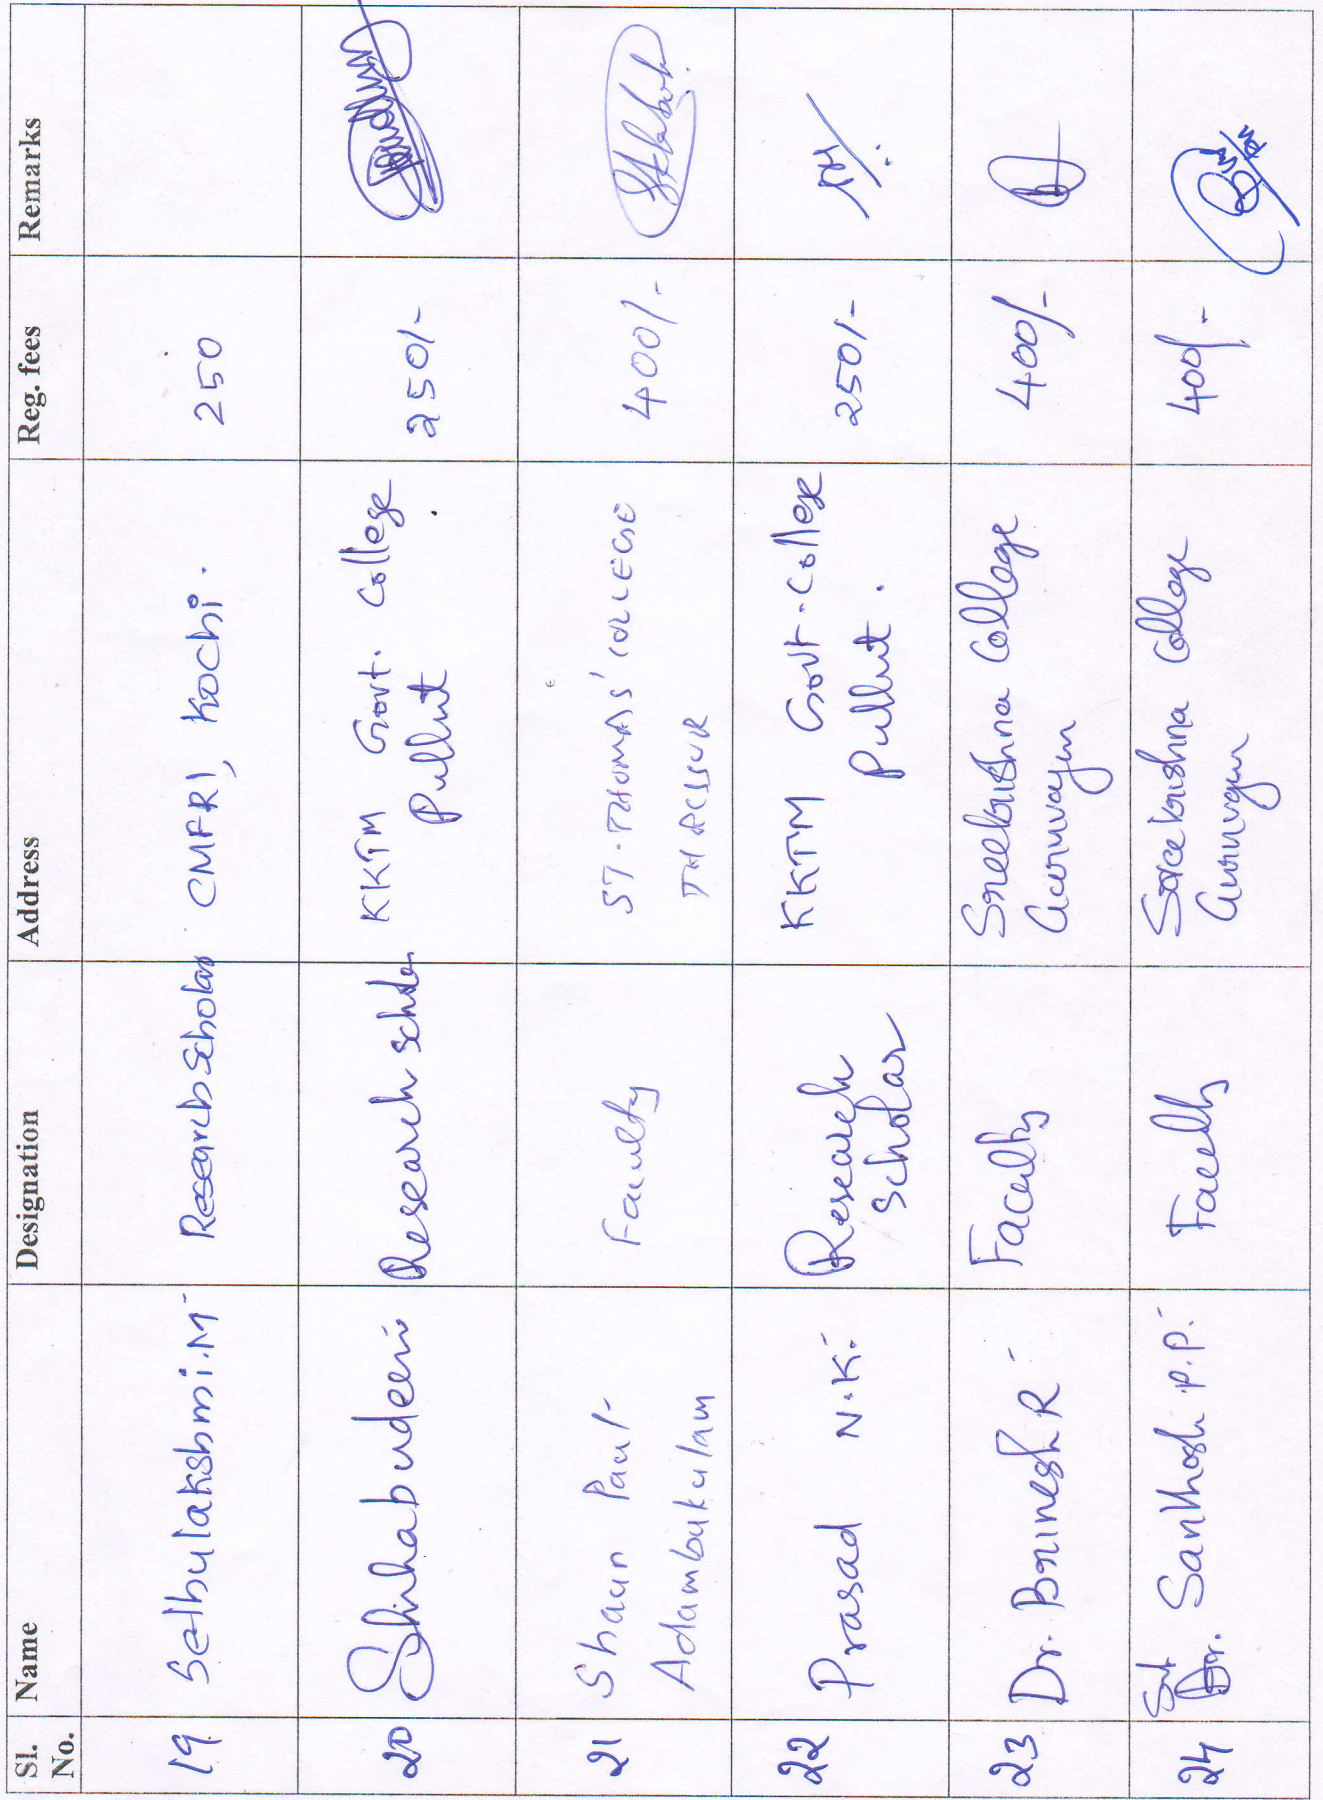 Sl. No. Name Designation Address Reg. fees Remarks
19 Sethulakshmi.M Research Scholar CMFRI, Kochi. 250
20 Shihabudeen Research Scholar KKTM Govt. College
Pullut 250/-
21 Shaun Paul Faculty ST. THOMAS' COLLEGE 400/-
Adambukulam THRISSUR
22 Prasad N.K. Research KKTM Govt. College 250/-
Scholar Pullut.
23 Dr. Brinesh R Faculty Sreekrishna College 400/-
Guruvayur
24 Santhosh P.P. Faculty Sreekrishna College 400/-
Guruvayur